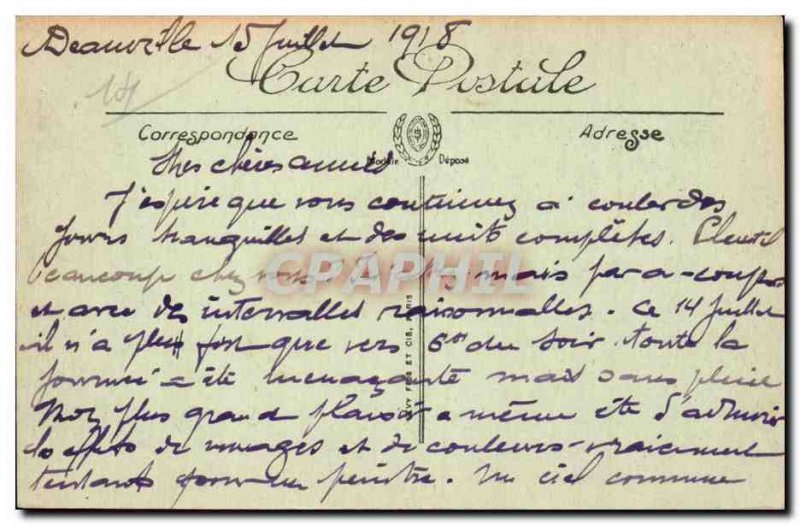 Deauville 15 Juillet 1918
Carte Postale
Correspondance
Adresse
Modèle Déposé
Mes chères amies
J'espère que vous continuez à couler des
jours tranquilles et des nuits complètes. Pleut-il
beaucoup chez vous ? Ici, mais par à-coups
et avec des intervalles raisonnables. Ce 14 Juillet
il n'a plu fort que vers 6h du soir. toute la
journée a été menaçante mais sans pluie
Mon plus grand plaisir a même été d'admirer
les effets de nuages et de couleurs vraiment
tentants pour un peintre. Un ciel comme
CARAPHIL
ET CIE, PARIS